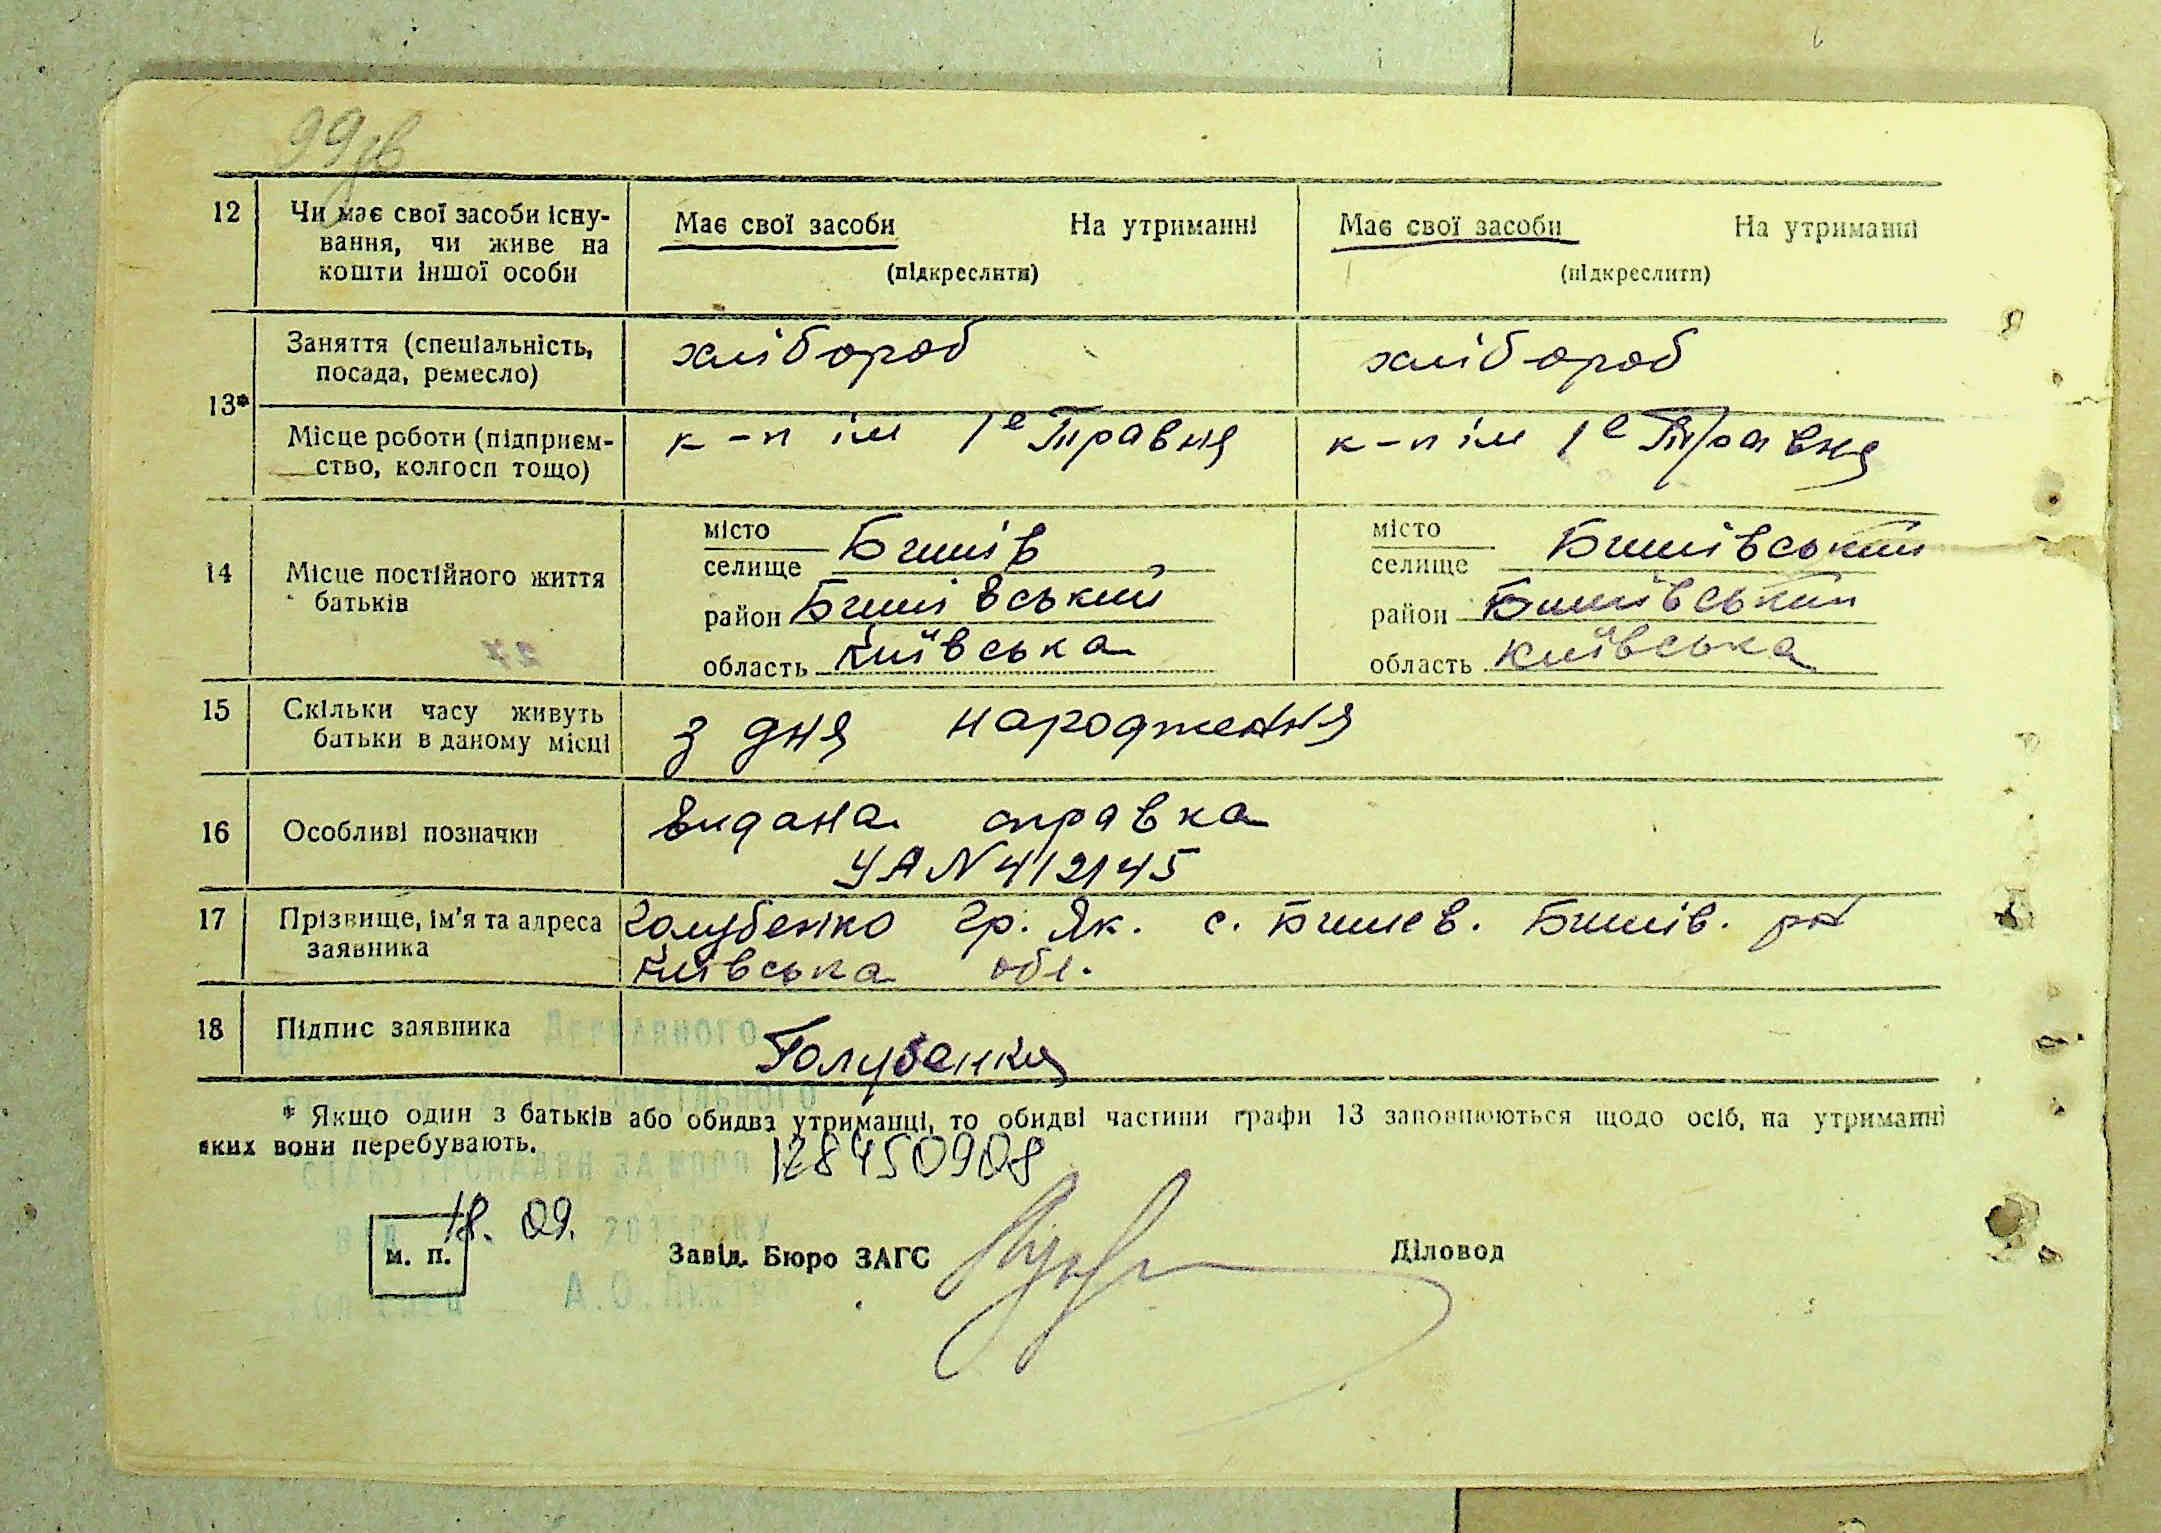 99зв
12 Чи має свої засоби існу-
вання, чи живе на
кошти іншої особи
Має свої засоби На утриманні
(підкреслити)
Має свої засоби На утриманні
(підкреслити)
13*
Заняття (спеціальність,
посада, ремесло)
хлібороб
хлібороб
Місце роботи (підприєм-
ство, колгосп тощо)
к-п ім 1е Травня
к-п ім 1е Травня
14 Місце постійного життя
батьків
місто
селище Бишів
район Бишівський
область Київська
місто
селище Бишівський
район Бишівський
область Київська
15 Скільки часу живуть
батьки в даному місці
з дня народження
16 Особливі позначки
Видана справка
УА N 412145
17 Прізвище, ім'я та адреса
заявника
Голубенко Гр. Як. с. Бишев. Бишів. рн
Київська обл.
18 Підпис заявника
Голубенко
* Якщо один з батьків або обидва утриманці, то обидві частини графи 13 заповнюються щодо осіб, на утриманні
яких вони перебувають.
128450908
18. 09.
м. п.
Завід. Бюро ЗАГС
Діловод